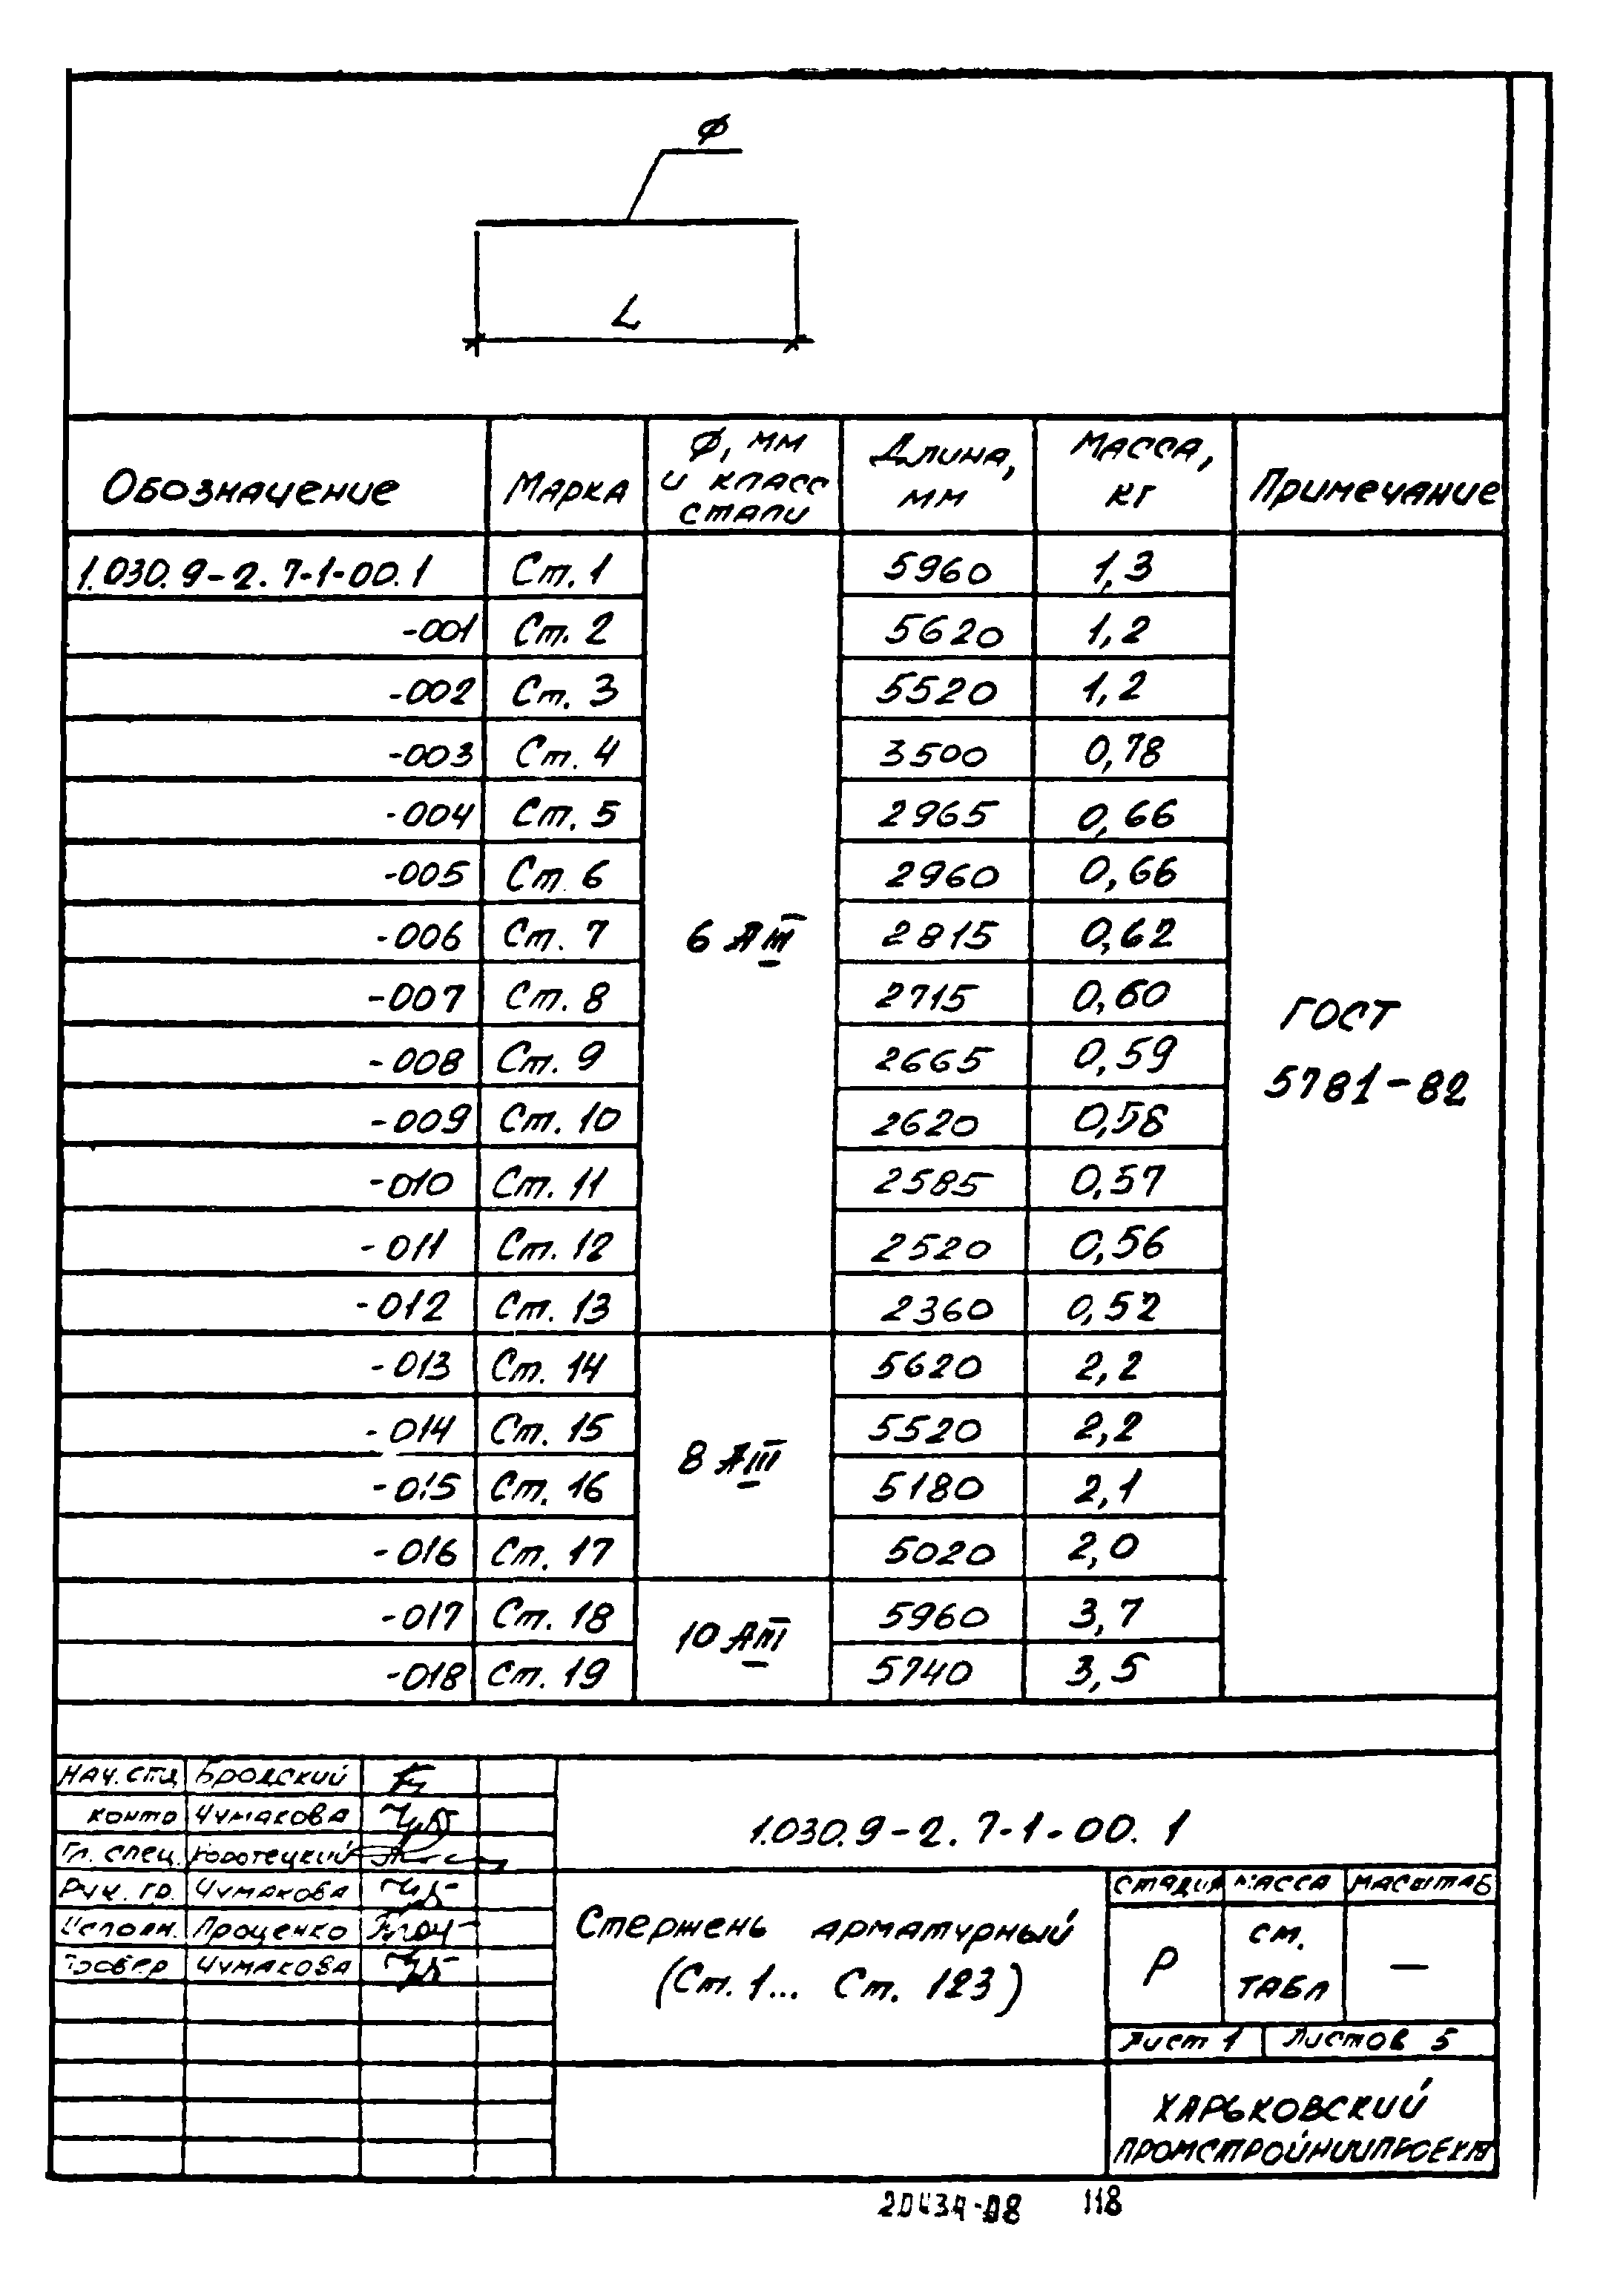 Ø
L
Обозначение Марка Ø, мм и класс стали Длина, мм Масса, кг Примечание
1.030.9-2.7-1-00.1 Ст.1 6 АIII 5960 1,3 ГОСТ 5781-82
-001 Ст. 2 5620 1,2
-002 Ст. 3 5520 1,2
-003 Ст. 4 3500 0,78
-004 Ст. 5 2965 0,66
-005 Ст 6 2960 0,66
-006 Ст. 7 2815 0,62
-007 Ст. 8 2715 0,60
-008 Ст. 9 2665 0,59
-009 Ст. 10 2620 0,58
-010 Ст. 11 2585 0,57
-011 Ст. 12 2520 0,56
-012 Ст. 13 2360 0,52
-013 Ст. 14 8 АIII 5620 2,2
-014 Ст. 15 5520 2,2
-015 Ст. 16 5180 2,1
-016 Ст. 17 5020 2,0
-017 Ст. 18 10 АIII 5960 3,7
-018 Ст. 19 5740 3,5
Нач. Бродский
контр Чумакова
Гл. спец.
Рук. гр. Чумакова
Исполн. Проценко
Провер Чумакова
1.030.9-2.7-1-00.1
Стержень арматурный
(Ст.1... Ст. 123)
Стадия Масса Масштаб
Р см. табл —
Лист 1 Листов 5
ХАРЬКОВСКИЙ
ПРОМСТРОЙНИИПРОЕКТ
118